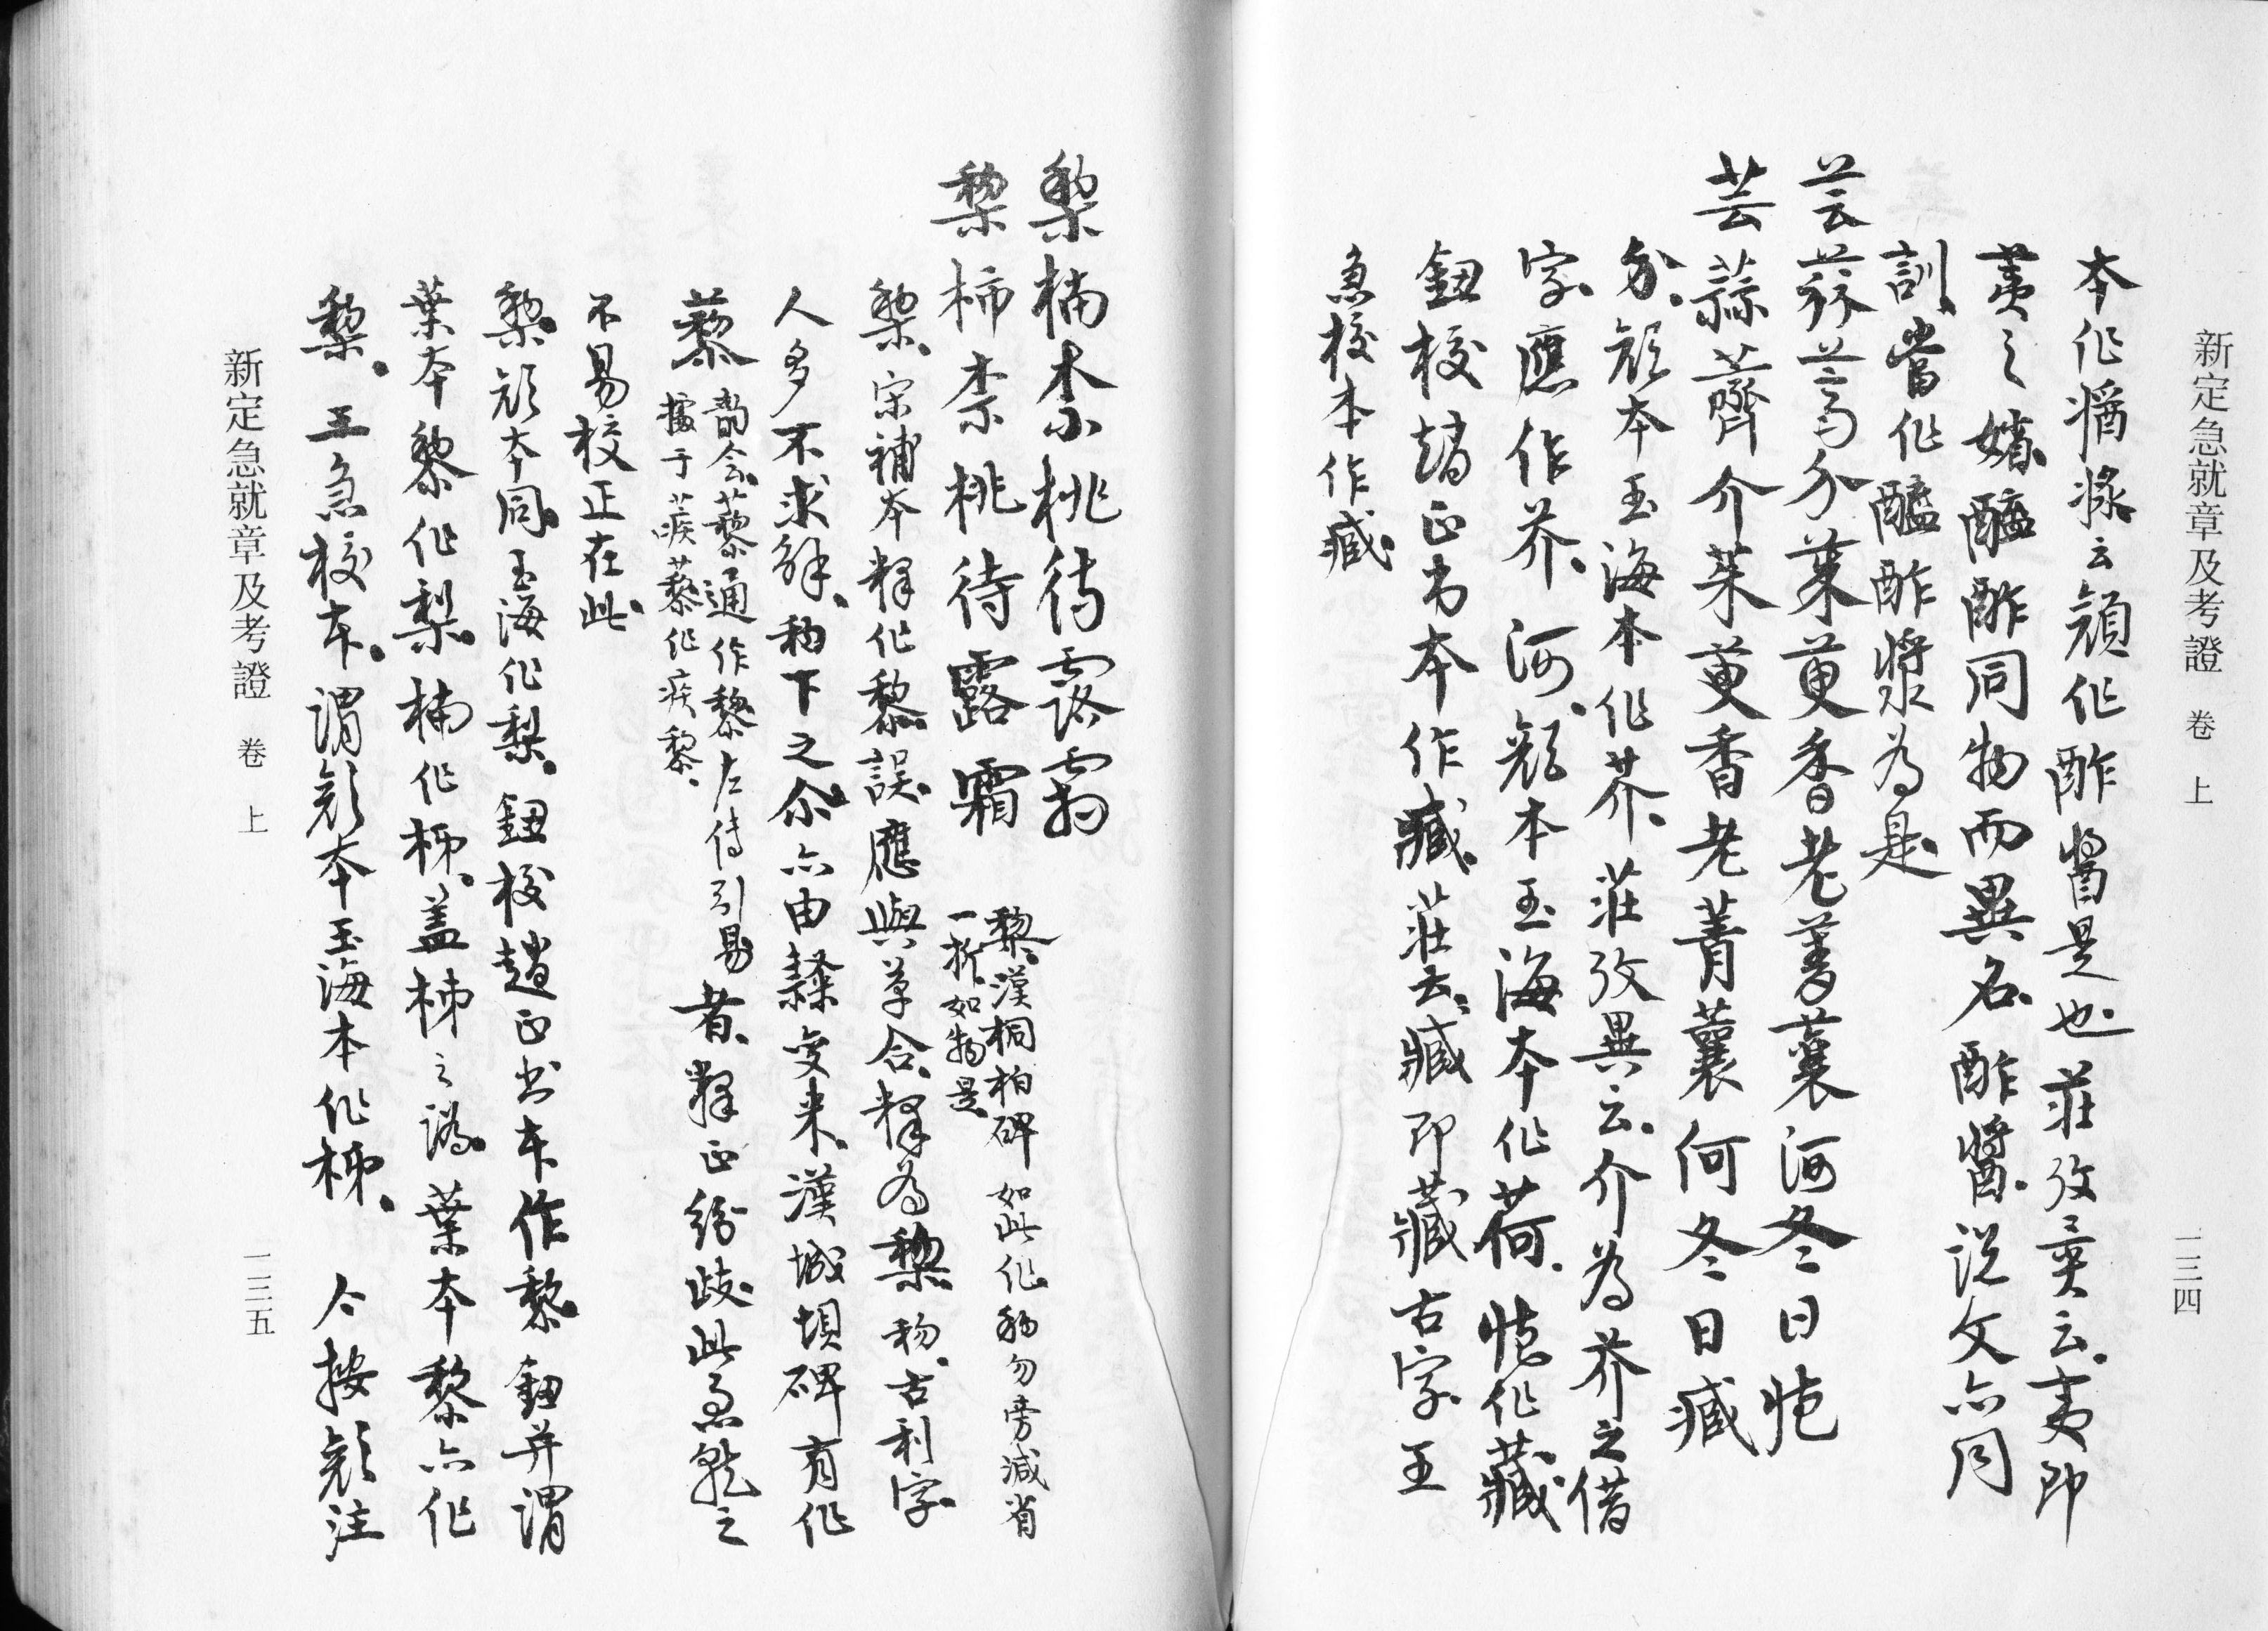 新定急就章及考證 卷 上
一三四
本作酱󠄀㳄云顏作酢醬是也莊攷異云夷即
荑之媍醯酢同物而異名酢醬说文亦同
訓當作醯酢漿為是
芸蒜薺介茱萸香老菁蘘河冬日
芸蒜薺介茱萸香老菁蘘何冬日臧
顏本玉海本作芥莊攷異云介為芥之借
字應作芥河顏本玉海本作荷 作藏
鈕校趙正书本作臧莊云臧即藏古字王
急校本作臧
棃柿柰桃待露霜
棃柿柰桃待露霜
黎漢桐柏碑 如此作 勿旁減省
一折如物是
棃宋補本释作黎誤應與草合释為棃 古利字
人多不求解 下之 亦由隸变来漢城壩碑有作
藜 韵会藜通作黎左传引易
據于蒺藜作疾黎
者释正纷歧此急就之
不易校正在此
棃顏本同玉海作梨鈕校趙正书本作黎鈕并謂
葉本黎作梨柿作柹蓋柹之譌葉本黎亦作
棃王急校本謂顏本玉海本作柹 今按顏注
新定急就章及考證 卷 上
一三五